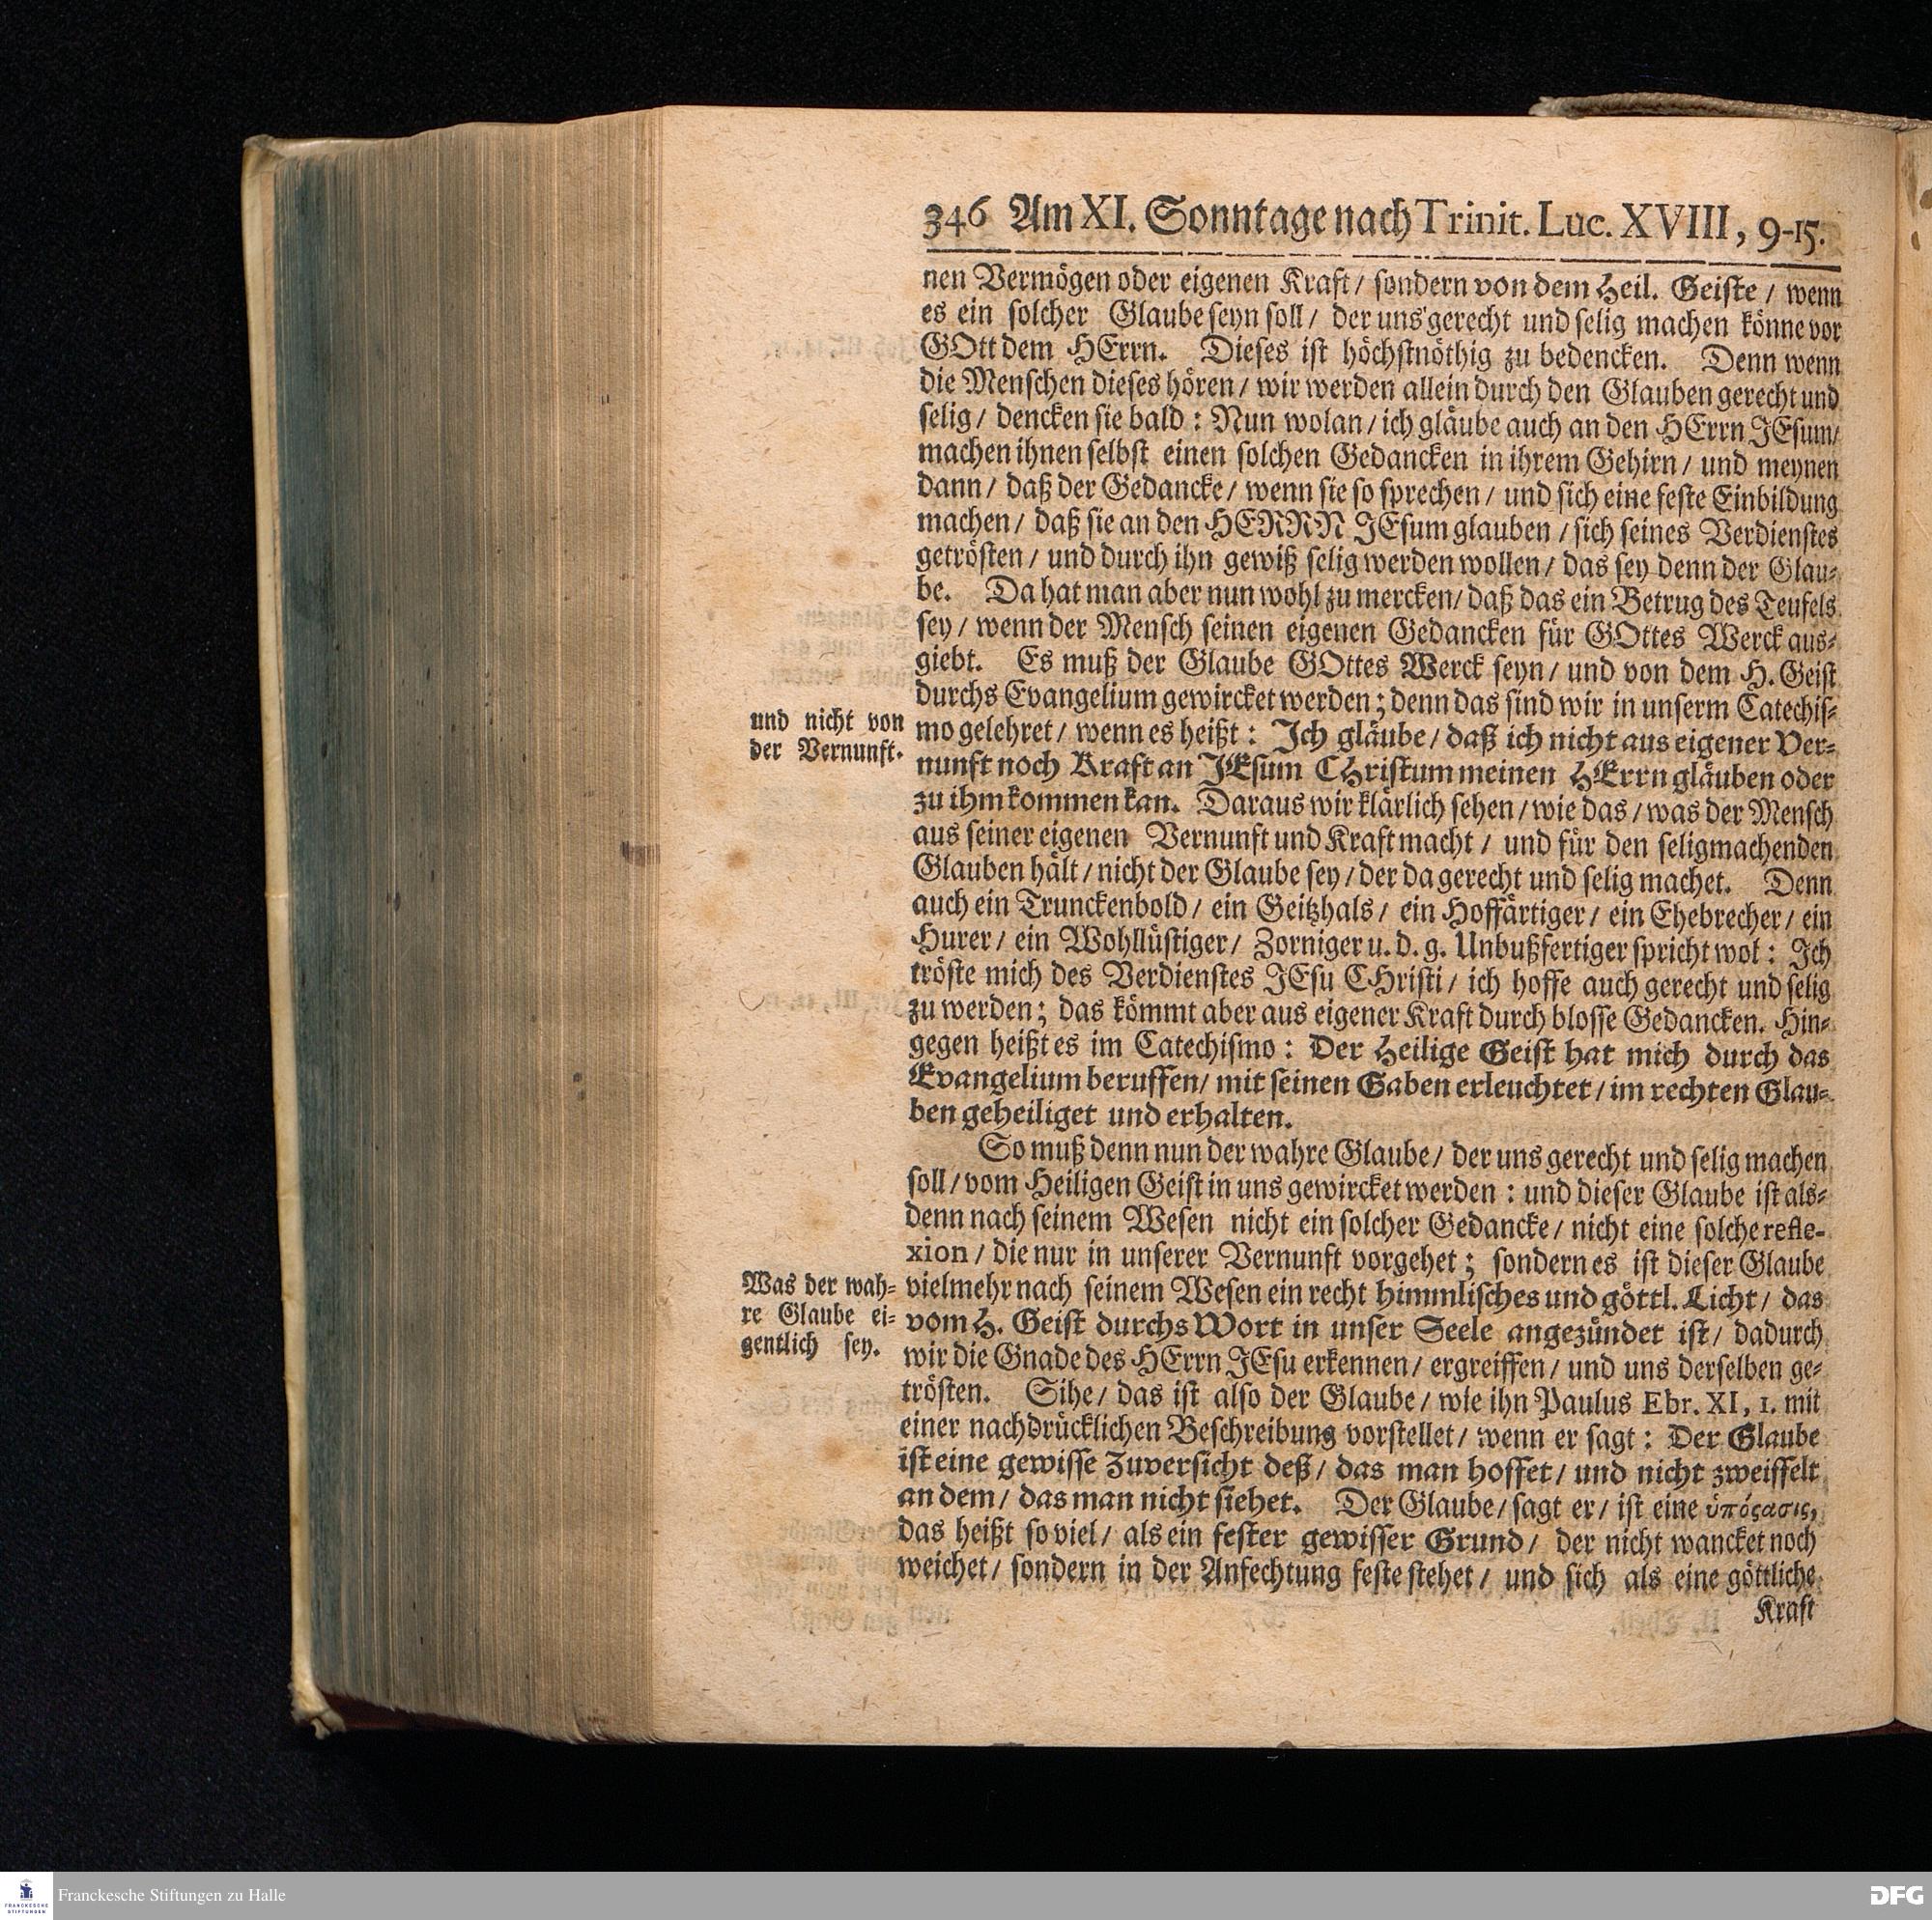 346 Am XI. Sonntage nach Trinit. Luc. XVIII, 9-15.
nen Vermögen oder eigenen Kraft / sondern von dem Heil. Geiste / wenn
es ein solcher Glaube seyn soll / der uns gerecht und selig machen könne vor
GOtt dem HErrn. Dieses ist höchstnöthig zu bedencken. Denn wenn
die Menschen dieses hören / wir werden allein durch den Glauben gerecht und
selig / dencken sie bald : Nun wolan / ich gläube auch an den HErrn JEsum /
machen ihnen selbst einen solchen Gedancken in ihrem Gehirn / und meynen
dann / daß der Gedancke / wenn sie so sprechen / und sich eine feste Einbildung
machen / daß sie an den HERRN JEsum glauben / sich seines Verdienstes
getrösten / und durch ihn gewiß selig werden wollen / das sey denn der Glau-
be. Da hat man aber nun wohl zu mercken / daß das ein Betrug des Teufels
sey / wenn der Mensch seinen eigenen Gedancken für GOttes Werck aus-
giebt. Es muß der Glaube GOttes Werck seyn / und von dem H. Geist
durchs Evangelium gewircket werden ; denn das sind wir in unserm Catechis-
und nicht von
der Vernunft.
mo gelehret / wenn es heißt : Ich gläube / daß ich nicht aus eigener Ver-
nunft noch Kraft an JEsum CHristum meinen HErrn gläuben oder
zu ihm kommen kan. Daraus wir klärlich sehen / wie das / was der Mensch
aus seiner eigenen Vernunft und Kraft macht / und für den seligmachenden
Glauben hält / nicht der Glaube sey / der da gerecht und selig machet. Denn
auch ein Trunckenbold / ein Geitzhals / ein Hoffärtiger / ein Ehebrecher / ein
Hurer / ein Wohllüstiger / Zorniger u. d. g. Unbußfertiger spricht wol : Ich
tröste mich des Verdienstes JEsu CHristi / ich hoffe auch gerecht und selig
zu werden ; das kömmt aber aus eigener Kraft durch blosse Gedancken. Hin-
gegen heißt es im Catechismo : Der Heilige Geist hat mich durch das
Evangelium beruffen / mit seinen Gaben erleuchtet / im rechten Glau-
ben geheiliget und erhalten.
So muß denn nun der wahre Glaube / der uns gerecht und selig machen
soll / vom Heiligen Geist in uns gewircket werden : und dieser Glaube ist als-
denn nach seinem Wesen nicht ein solcher Gedancke / nicht eine solche refle-
xion / die nur in unserer Vernunft vorgehet ; sondern es ist dieser Glaube
Was der wah-
re Glaube ei-
gentlich sey.
vielmehr nach seinem Wesen ein recht himmlisches und göttl. Licht / das
vom H. Geist durchs Wort in unser Seele angezündet ist / dadurch
wir die Gnade des HErrn JEsu erkennen / ergreiffen / und uns derselben ge-
trösten. Sihe / das ist also der Glaube / wie ihn Paulus Ebr. XI, 1. mit
einer nachdrücklichen Beschreibung vorstellet / wenn er sagt : Der Glaube
ist eine gewisse Zuversicht deß / das man hoffet / und nicht zweiffelt
an dem / das man nicht siehet. Der Glaube / sagt er / ist eine ὑπόςασις,
das heißt so viel / als ein fester gewisser Grund / der nicht wancket noch
weichet / sondern in der Anfechtung feste stehet / und sich als eine göttliche
Kraft
FRANCKESCHE
STIFTUNGEN
Franckesche Stiftungen zu Halle
DFG